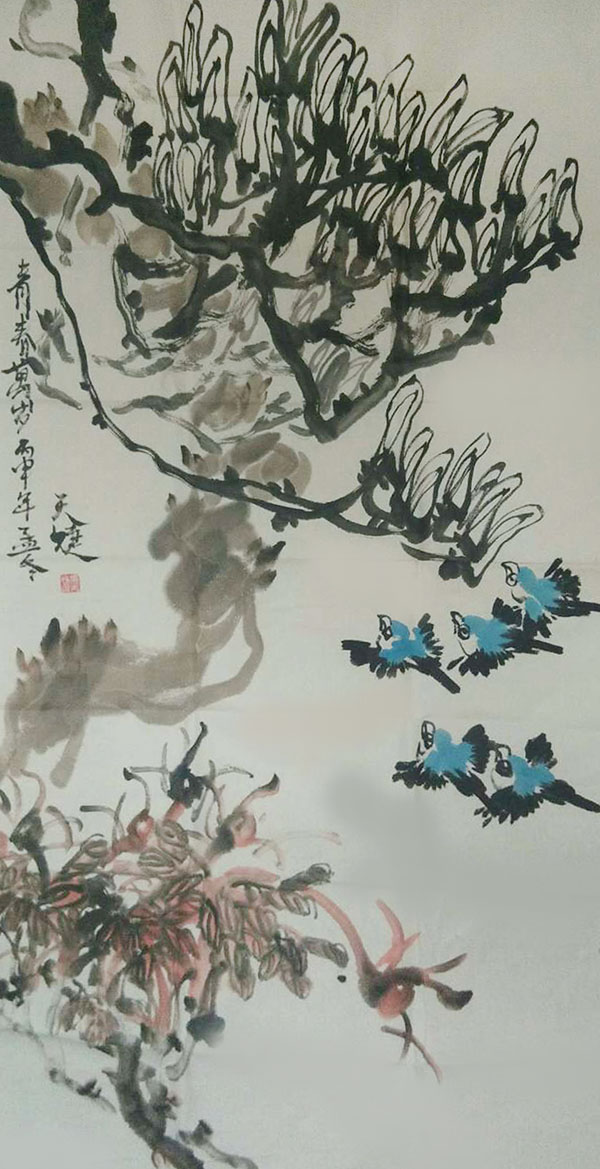 青春萬岁 丙申年孟冬
天健